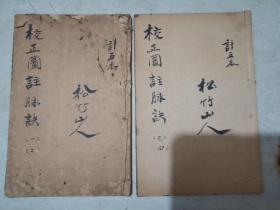 校正圖註脉訣(一)(二)
計五本
松竹山人
校正圖註脉訣(三)(四)
計五本
松竹山人